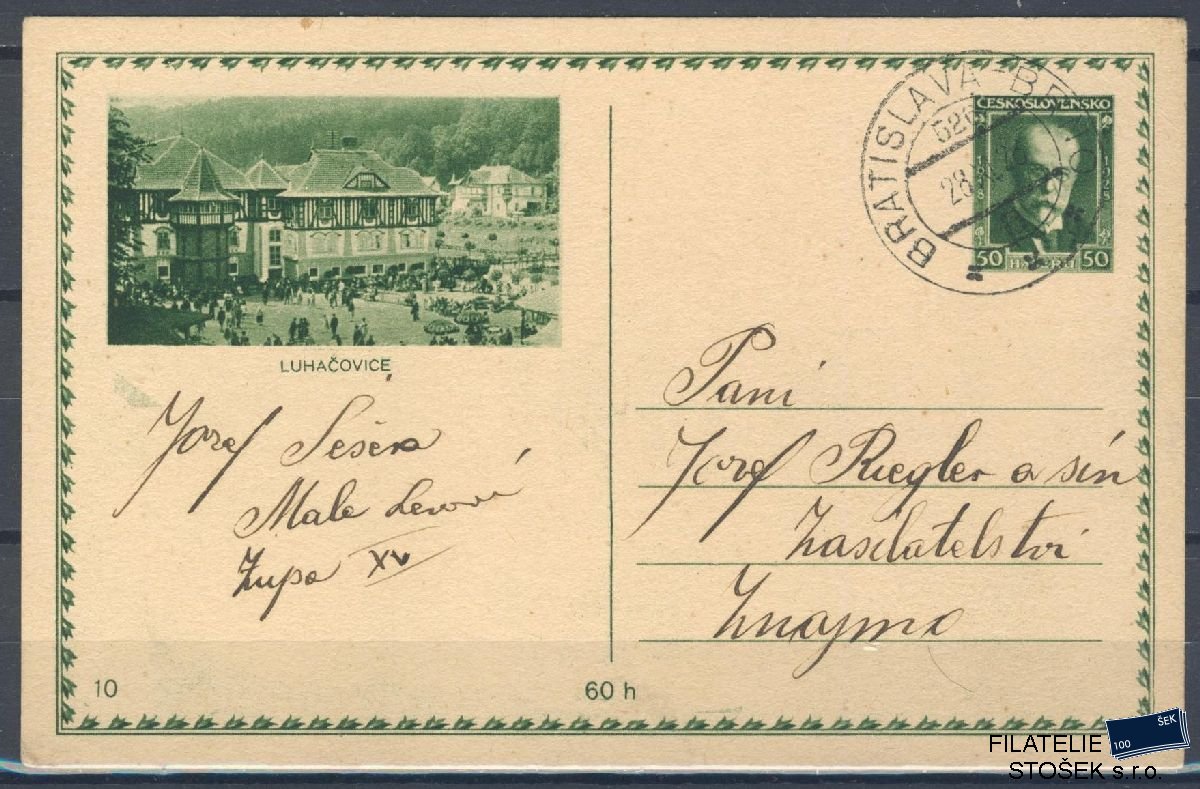 LUHAČOVICE
Jozef
Male
Župa XV
10
60 h
BRATISLAVA-BE
28
ČESKOSLOVENSKO
1918 1928
50 HALÉŘŮ 50
Pani
Jozef Riegler a sín
Zasilatelství
Znojmo
FILATELIE
STOŠEK s.r.o.
100
ŠEK